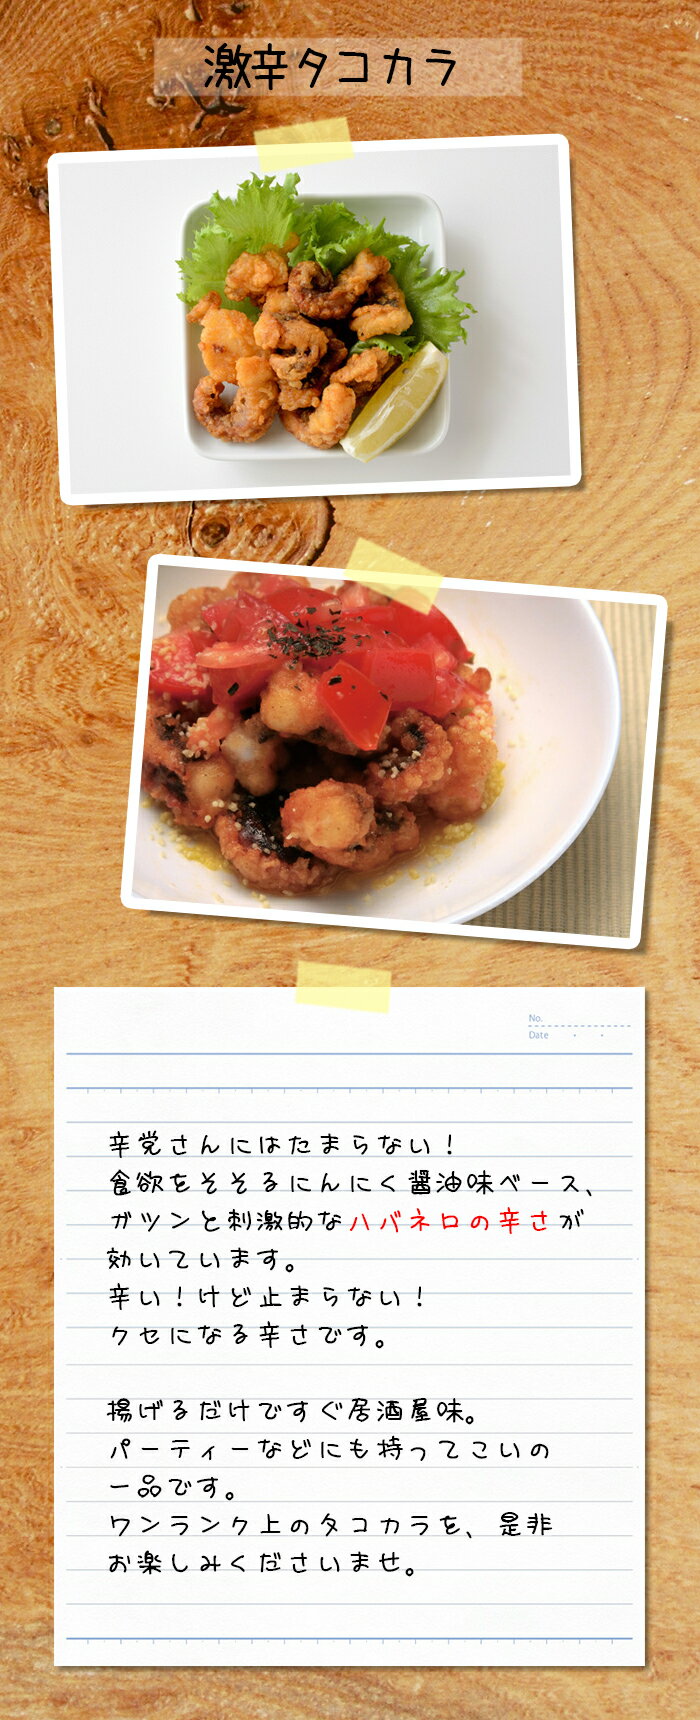 激辛タコカラ
No.
Date
辛党さんにはたまらない！
食欲をそそるにんにく醤油味ベース、
ガツンと刺激的なハバネロの辛さが
効いています。
辛い！けど止まらない！
クセになる辛さです。
揚げるだけですぐ居酒屋味。
パーティーなどにも持ってこいの
一品です。
ワンランク上のタコカラを、是非
お楽しみくださいませ。